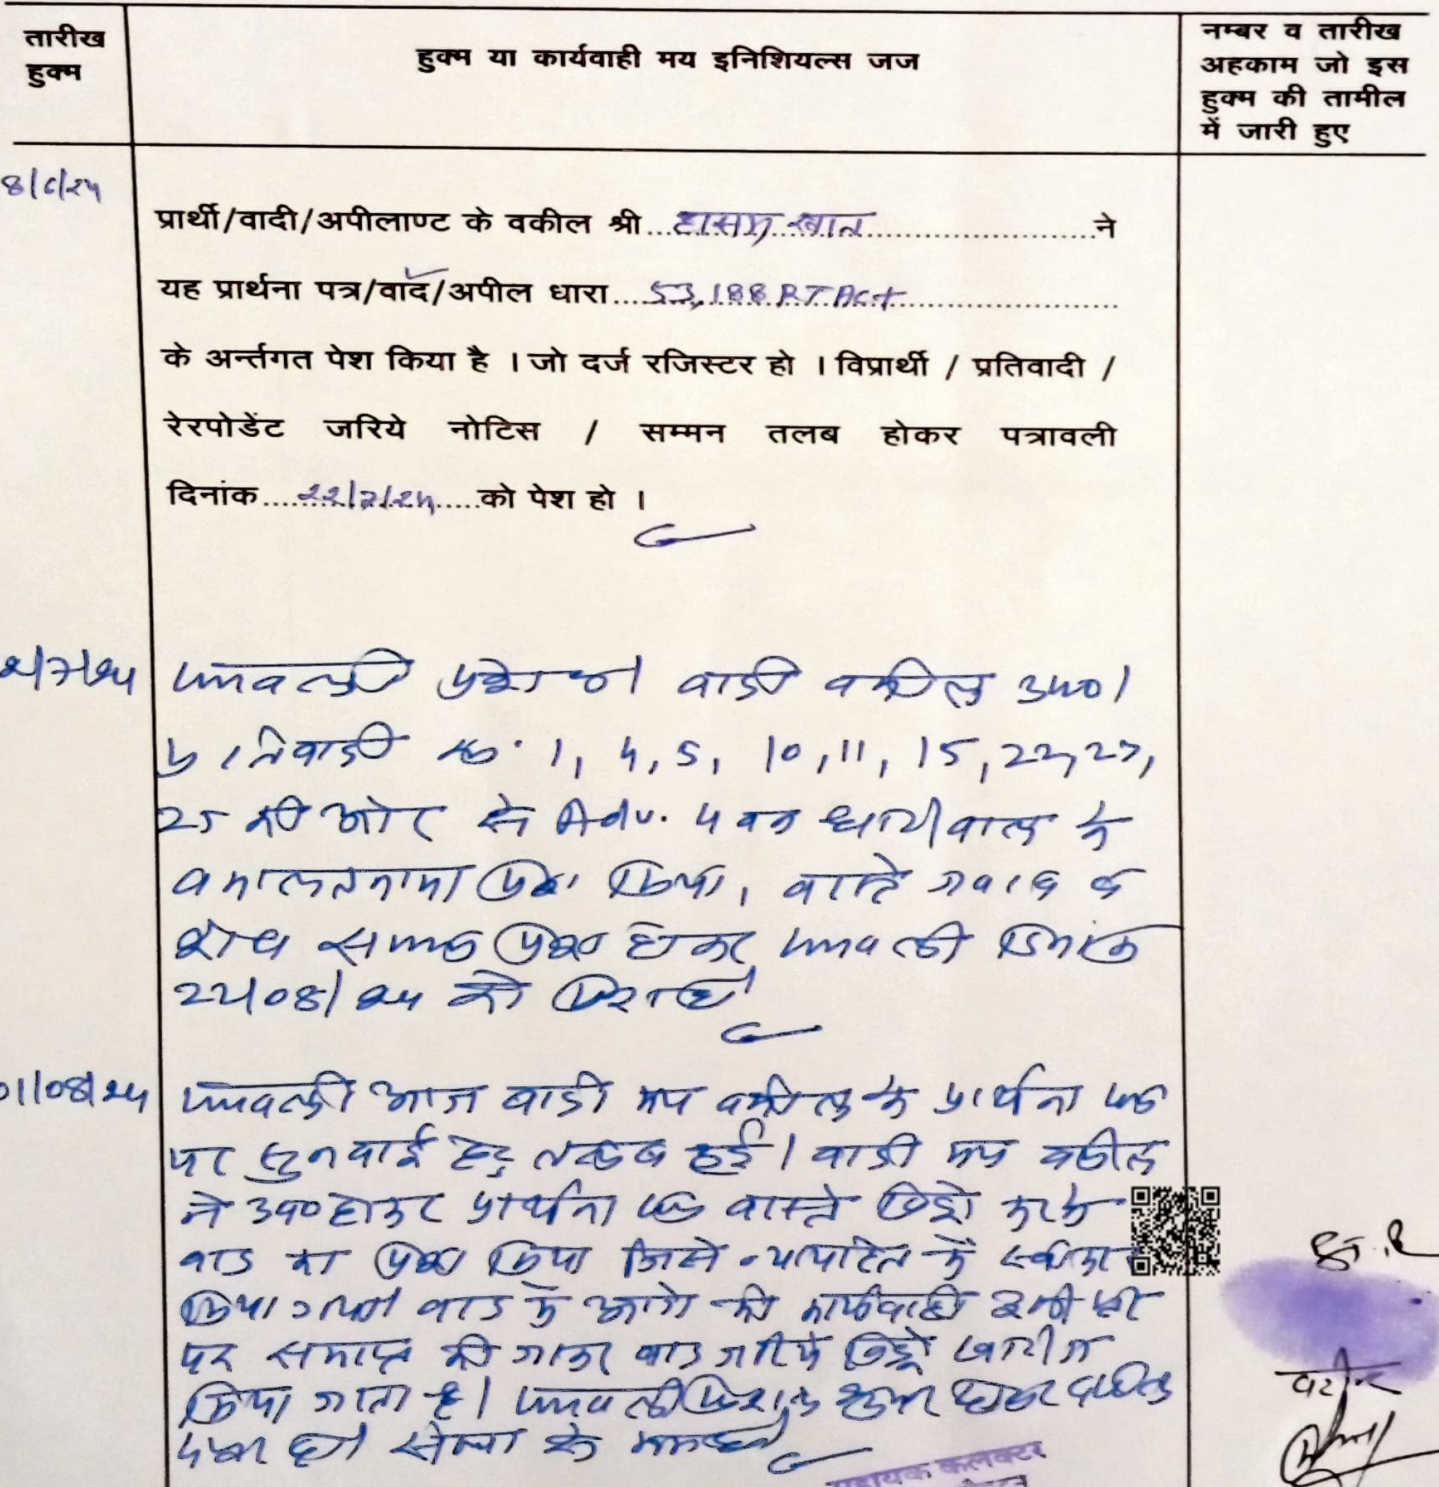 तारीख
हुक्म
हुक्म या कार्यवाही मय इनिशियल्स जज
नम्बर व तारीख
अहकाम जो इस
हुक्म की तामील
में जारी हुए
प्रार्थी/वादी/अपीलाण्ट के वकील श्री...हासम खान...ने
यह प्रार्थना पत्र/वाद/अपील धारा....53,188 RT Act
के अर्न्तगत पेश किया है । जो दर्ज रजिस्टर हो । विप्रार्थी / प्रतिवादी /
रेरपोडेंट जरिये नोटिस / सम्मन तलब होकर पत्रावली
दिनांक....22/7/24.....को पेश हो ।
पत्रावली पेश हुई। वादी वकील उप०।
प्रतिवादी सं. 1, 4, 5, 10, 11, 15, 22, 23,
25 की ओर से Adv. धारीवाल के
वकालतनामा पेश किया, वास्ते जवाब व
शेष पेश होकर पत्रावली दिनांक
22/08/24 को पेश हो।
01/08/24
पत्रावली आज वादी मय वकील के प्रार्थना पत्र
पर सुनवाई हेतु तलब हुई। वादी मय वकील
ने उप० होकर प्रार्थना पत्र वास्ते विड्रो करने
वाद का पेश किया जिसे न्यायहित में स्वीकार
किया गया। वाद में आगे की कार्यवाही इसी स्तर
पर समाप्त की जाकर वाद जरिये विड्रो खारीज
किया जाता है। पत्रावली फैसल शुमार होकर दाखिल
दफ्तर हो।
सहायक कलक्टर